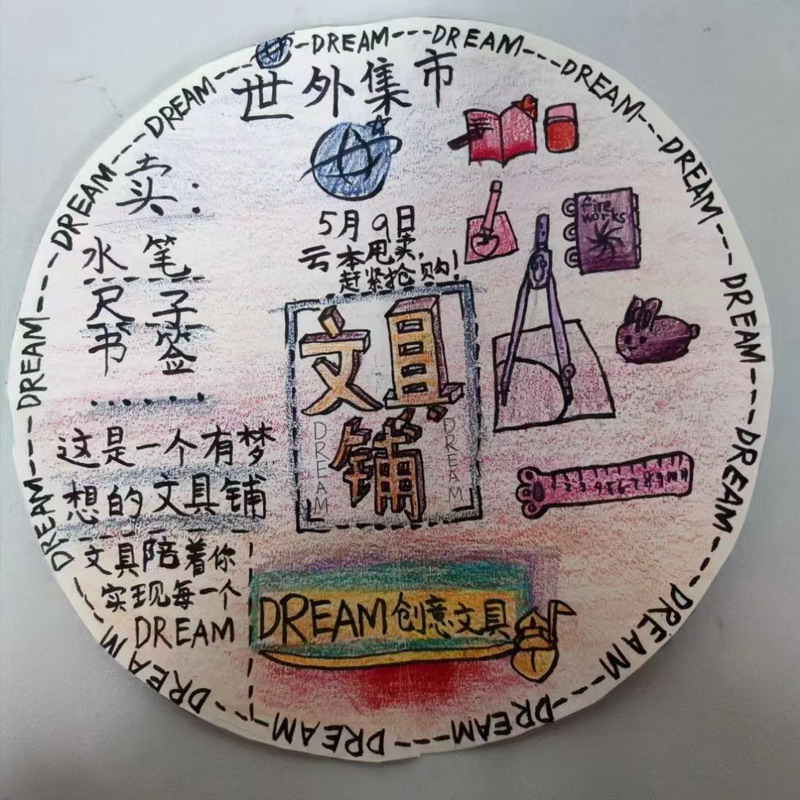 DREAM---DREAM---DREAM---DREAM---DREAM---DREAM---DREAM---DREAM---DREAM---DREAM---DREAM---DREAM---DREAM---DREAM---DREAM---
世外集市
卖:
水笔
尺子
书签
......
5月9日
云本甩卖,
赶紧抢购!
fire
works
文具
铺
DREAM
DREAM
这是一个有梦
想的文具铺
文具陪着你
实现每一个
DREAM
DREAM创意文具